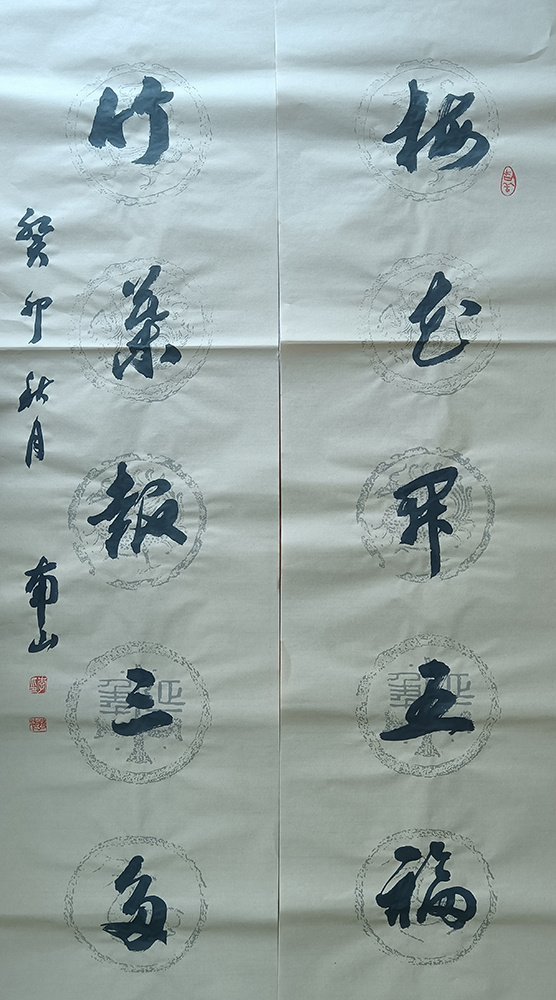 梅花開五福
竹葉報三多
癸卯秋月 南山